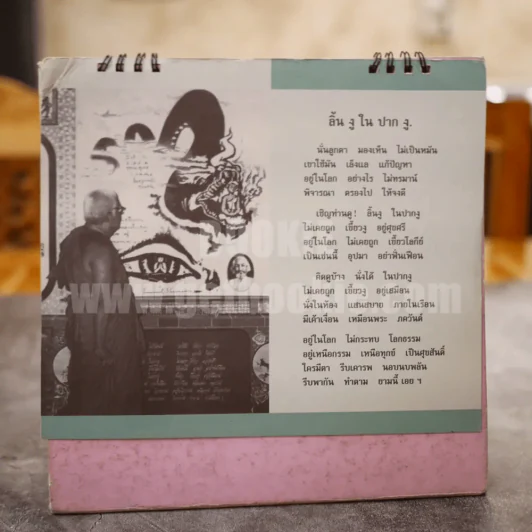 ลิ้น งู ใน ปาก งู.
นั่นลูกตา มองเห็น ไม่เป็นหมัน
เขาใช้มัน เล็งแล แก้ปัญหา
อยู่ในโลก อย่างไร ไม่ทรมาน์
พิจารณา ตรองไป ให้จงดี
เชิญท่านดู! ลิ้นงู ในปากงู
ไม่เคยถูก เขี้ยวงู อยู่สุขศรี
อยู่ในโลก ไม่เคยถูก เขี้ยวโลกีย์
เป็นเช่นนี้ อุปมา อย่าฟั่นเฟือน
คิดดูบ้าง นั่งได้ ในปากงู
ไม่เคยถูก เขี้ยวงู อยู่เสมือน
นั่งในห้อง แสนสบาย ภายในเรือน
มีเค้าเงื่อน เหมือนพระ ภควันต์
อยู่ในโลก ไม่กระทบ โลกธรรม
อยู่เหนือกรรม เหนือทุกข์ เป็นสุขสันติ์
ใครมีตา รีบเคารพ นอบนบพลัน
รีบพากัน ทำตาม ยามนี้ เอย ฯ